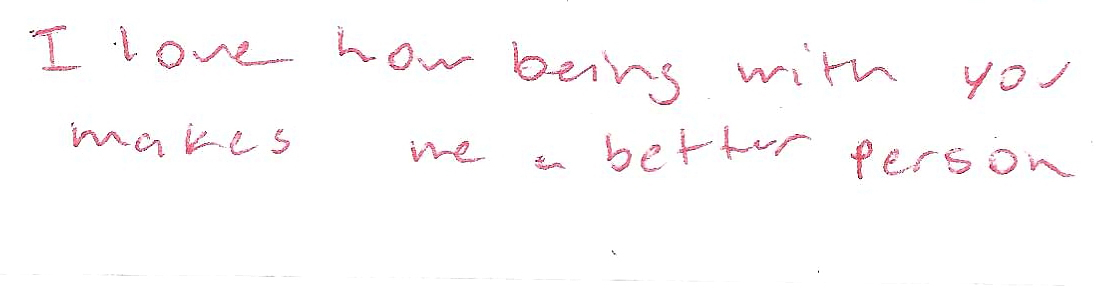 I love how being with you
makes me a better person